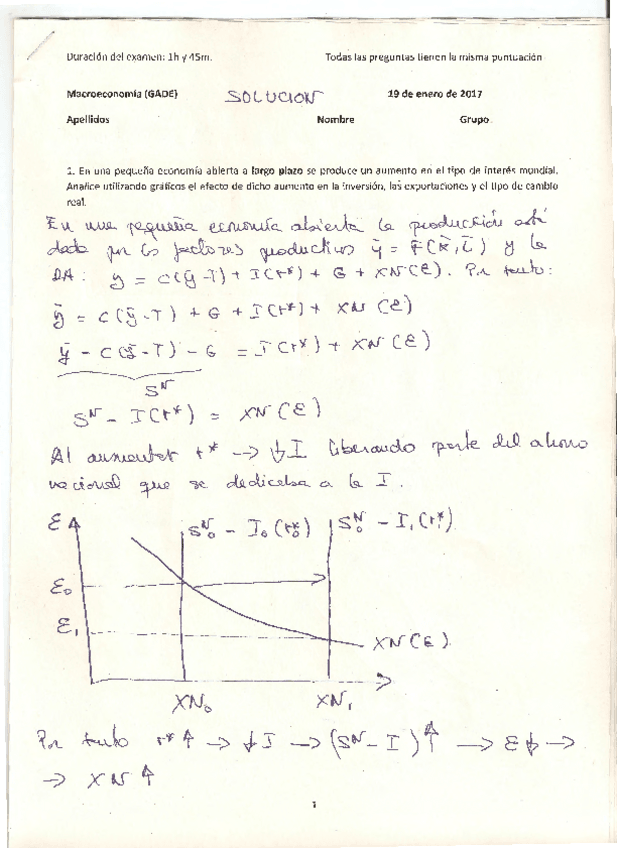 Duración del examen: 1h y 45m. Todas las preguntas tienen la misma puntuación
Macroeconomía (GADE) SOLUCION 19 de enero de 2017
Apellidos Nombre Grupo
1. En una pequeña economía abierta a largo plazo se produce un aumento en el tipo de interés mundial.
Analice utilizando gráficos el efecto de dicho aumento en la inversión, las exportaciones y el tipo de cambio
real.
En una pequeña economía abierta la producción está
dada por los factores productivos ȳ = F(K̄, L̄) y la
DA: y = C(ȳ-T) + I(r*) + G + XN(ε). Por tanto:
ȳ = C(ȳ-T) + G + I(r*) + XN(ε)
ȳ - C(ȳ-T) - G = I(r*) + XN(ε)
Sᴺ
Sᴺ - I(r*) = XN(ε)
Al aumentar r* → ↓I liberando parte del ahorro
nacional que se dedicaba a la I.
ε S₀ᴺ - I₀(r₀*) S₀ᴺ - I₁(r₁*)
ε₀
ε₁
XN(ε)
XN₀ XN₁
Por tanto r*↑ → ↓I → (Sᴺ - I)↑ → ε↓ →
→ XN↑
1